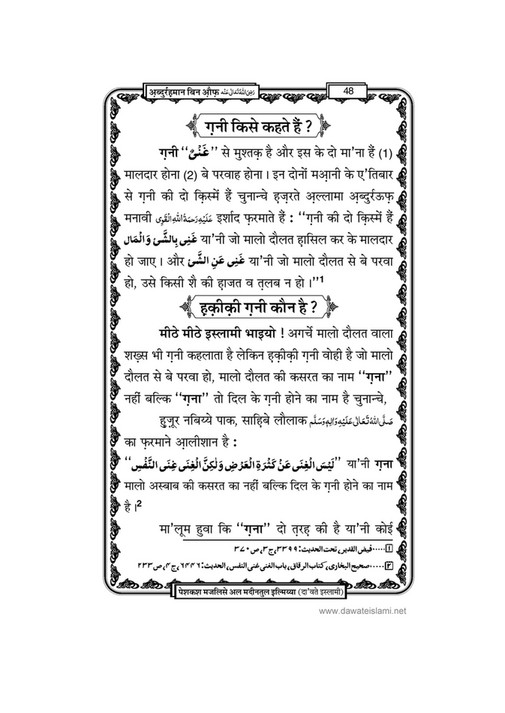 अ़ब्दुर्रह़मान बिन औ़फ़ رَضِیَ اللہُ تَعَالٰی عَنْہ 48
ग़नी किसे कहते हैं ?
ग़नी ‘‘غَنِیٌّ’’ से मुश्तक़ है और इस के दो मा'ना हैं (1)
मालदार होना (2) बे परवाह होना । इन दोनों मआ़नी के ए'तिबार
से ग़नी की दो क़िस्में हैं चुनान्चे ह़ज़रते अ़ल्लामा अ़ब्दुर्रऊफ़
मनावी عَلَیْہِ رَحْمَۃُ اللہِ الْقَوِی इर्शाद फ़रमाते हैं : ‘‘ग़नी की दो क़िस्में हैं
غَنِی بِالشَّیْ وَالْمَال या'नी जो मालो दौलत ह़ासिल कर के मालदार
हो जाए । और غَنِی عَنِ الشَّیْ या'नी जो मालो दौलत से बे परवा
हो, उसे किसी शै की ह़ाजत व त़लब न हो ।’’1
ह़क़ीक़ी ग़नी कौन है ?
मीठे मीठे इस्लामी भाइयो ! अगर्चे मालो दौलत वाला
शख़्स भी ग़नी कहलाता है लेकिन ह़क़ीक़ी ग़नी वोही है जो मालो
दौलत से बे परवा हो, मालो दौलत की कसरत का नाम ‘‘ग़ना’’
नहीं बल्कि ‘‘ग़ना’’ तो दिल के ग़नी होने का नाम है चुनान्चे,
हु़ज़ूर नबिय्ये पाक, साह़िबे लौलाक صَلَّی اللہُ تَعَالٰی عَلَیْہِ وَاٰلِہٖ وَسَلَّم
का फ़रमाने आ़लीशान है :
‘‘لَیْسَ الْغِنٰی عَنْ کَثْرَۃِ الْعَرَضِ وَلٰکِنَّ الْغِنٰی غِنَی النَّفْسِ’’ या'नी ग़ना
मालो अस्बाब की कसरत का नहीं बल्कि दिल के ग़नी होने का नाम
है ।2
मा'लूम हुवा कि ‘‘ग़ना’’ दो त़रह़ की है या'नी कोई
1.....فیض القدیر، تحت الحدیث:۳۳۹۹، ج۳، ص۳۷۰
2.....صحیح البخاری، کتاب الرقاق، باب الغنی غنی النفس، الحدیث:۶۴۴۶، ج۴، ص۲۳۳
पेशकश मजलिसे अल मदीनतुल इ़ल्मिय्या (दा'वते इस्लामी)
www.dawateislami.net